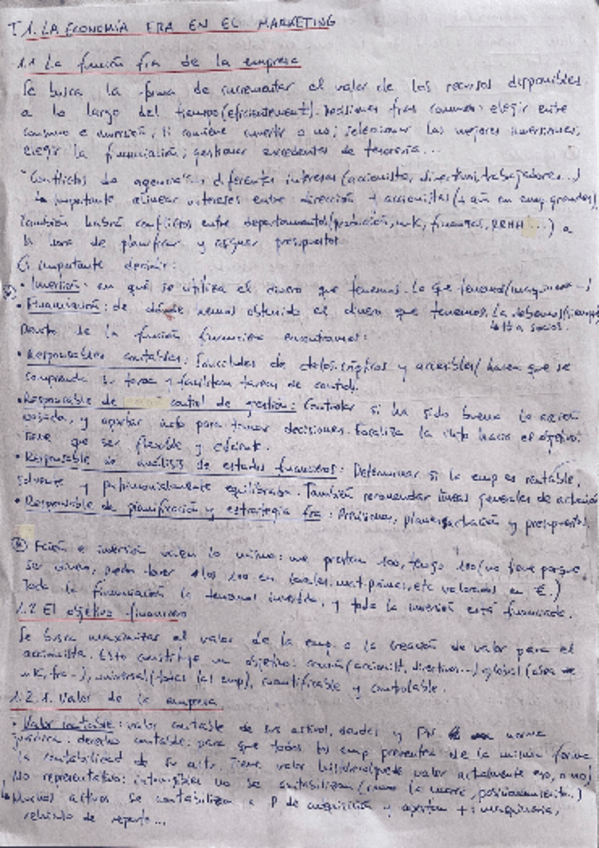 T1. LA ECONOMÍA FRA EN EL MARKETING
1.1 La función fra de la empresa
Se busca la forma de incrementar el valor de los recursos disponibles
a lo largo del tiempo (eficientement). Decisiones fras comunes: elegir entre
consumo e inversión, si conviene invertir o no; seleccionar las mejores inversiones;
elegir la financiación; gestionar excedentes de tesorería...
"Conflictos de agencia": diferentes intereses (accionista, directivos, trabajadores...)
Es importante alinear intereses entre dirección y accionistas (+ aún en emp grandes)
También habrá conflictos entre departamentos (producción, mk, finanzas, RRHH...) a
la hora de planificar y asignar presupuestos
Es importante
• Inversión: en qué se utiliza el dinero que tenemos. Lo que tenemos (maquinaria...)
• Financiación: de dónde hemos obtenido el dinero que tenemos. Lo debemos
a socios.
Dentro de la función financiera encontramos:
• Responsables contables: facultades de y accesibles/ hacen que se
comprenda su tarea y facilitan tareas de control.
• Responsable de control de gestión: Controlar si ha sido buena la acción
pasada, y aportar info para tomar decisiones. Focaliza la info hacia el objetivo.
Tiene que ser flexible y eficiente.
• Responsable de análisis de estados financieros: Determinar si la emp es rentable,
solvente y patrimonialmente equilibrada. También recomendar líneas generales de actuación
• Responsable de planificación y estrategia fra: Previsiones, planes actuación y presupuestos.
e inversión valen lo mismo: me prestan 100, tengo 100 (no tiene porque
ser dinero, puedo tener esos 100 en locales, mat. primas, etc valorados en €.)
Toda la financiación la tenemos invertida, y toda la inversión está financiada.
1.2 El objetivo financiero
Se busca maximizar el valor de la emp. o la creación de valor para el
accionista. Esto constituye un objetivo: común (accionist, directivos...) global (área de
mk, fra...), universal (todas las emp), cuantificable y controlable.
1.2.1. Valor de la empresa
• Valor contable: valor contable de sus activos, deudas y PN norma
jurídica: derecho contable, para que todas las emp presenten de la misma forma
la contabilidad de su activ. Tiene valor histórico (puede valor actualmente eso, o no)
No representativo: intangibles no se contabilizan (como la marca, posicionamiento..)
Muchos activos se contabilizan a P de adquisición y aportan +: maquinaria,
vehículo de reparto...